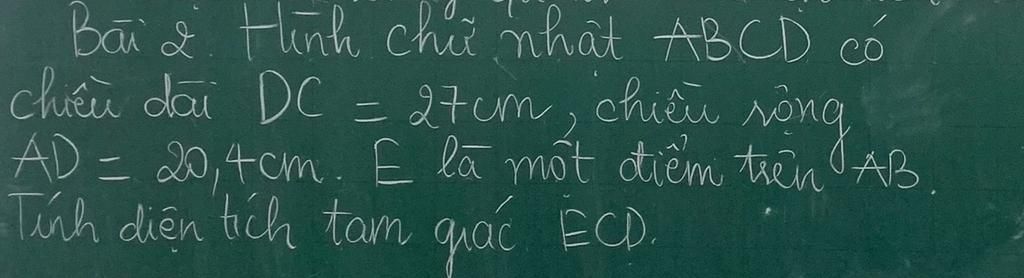 Bài 2. Hình chữ nhật ABCD có
chiều dài DC = 27cm, chiều rộng
AD = 20,4cm. E là một điểm trên AB.
Tính diện tích tam giác ECD.